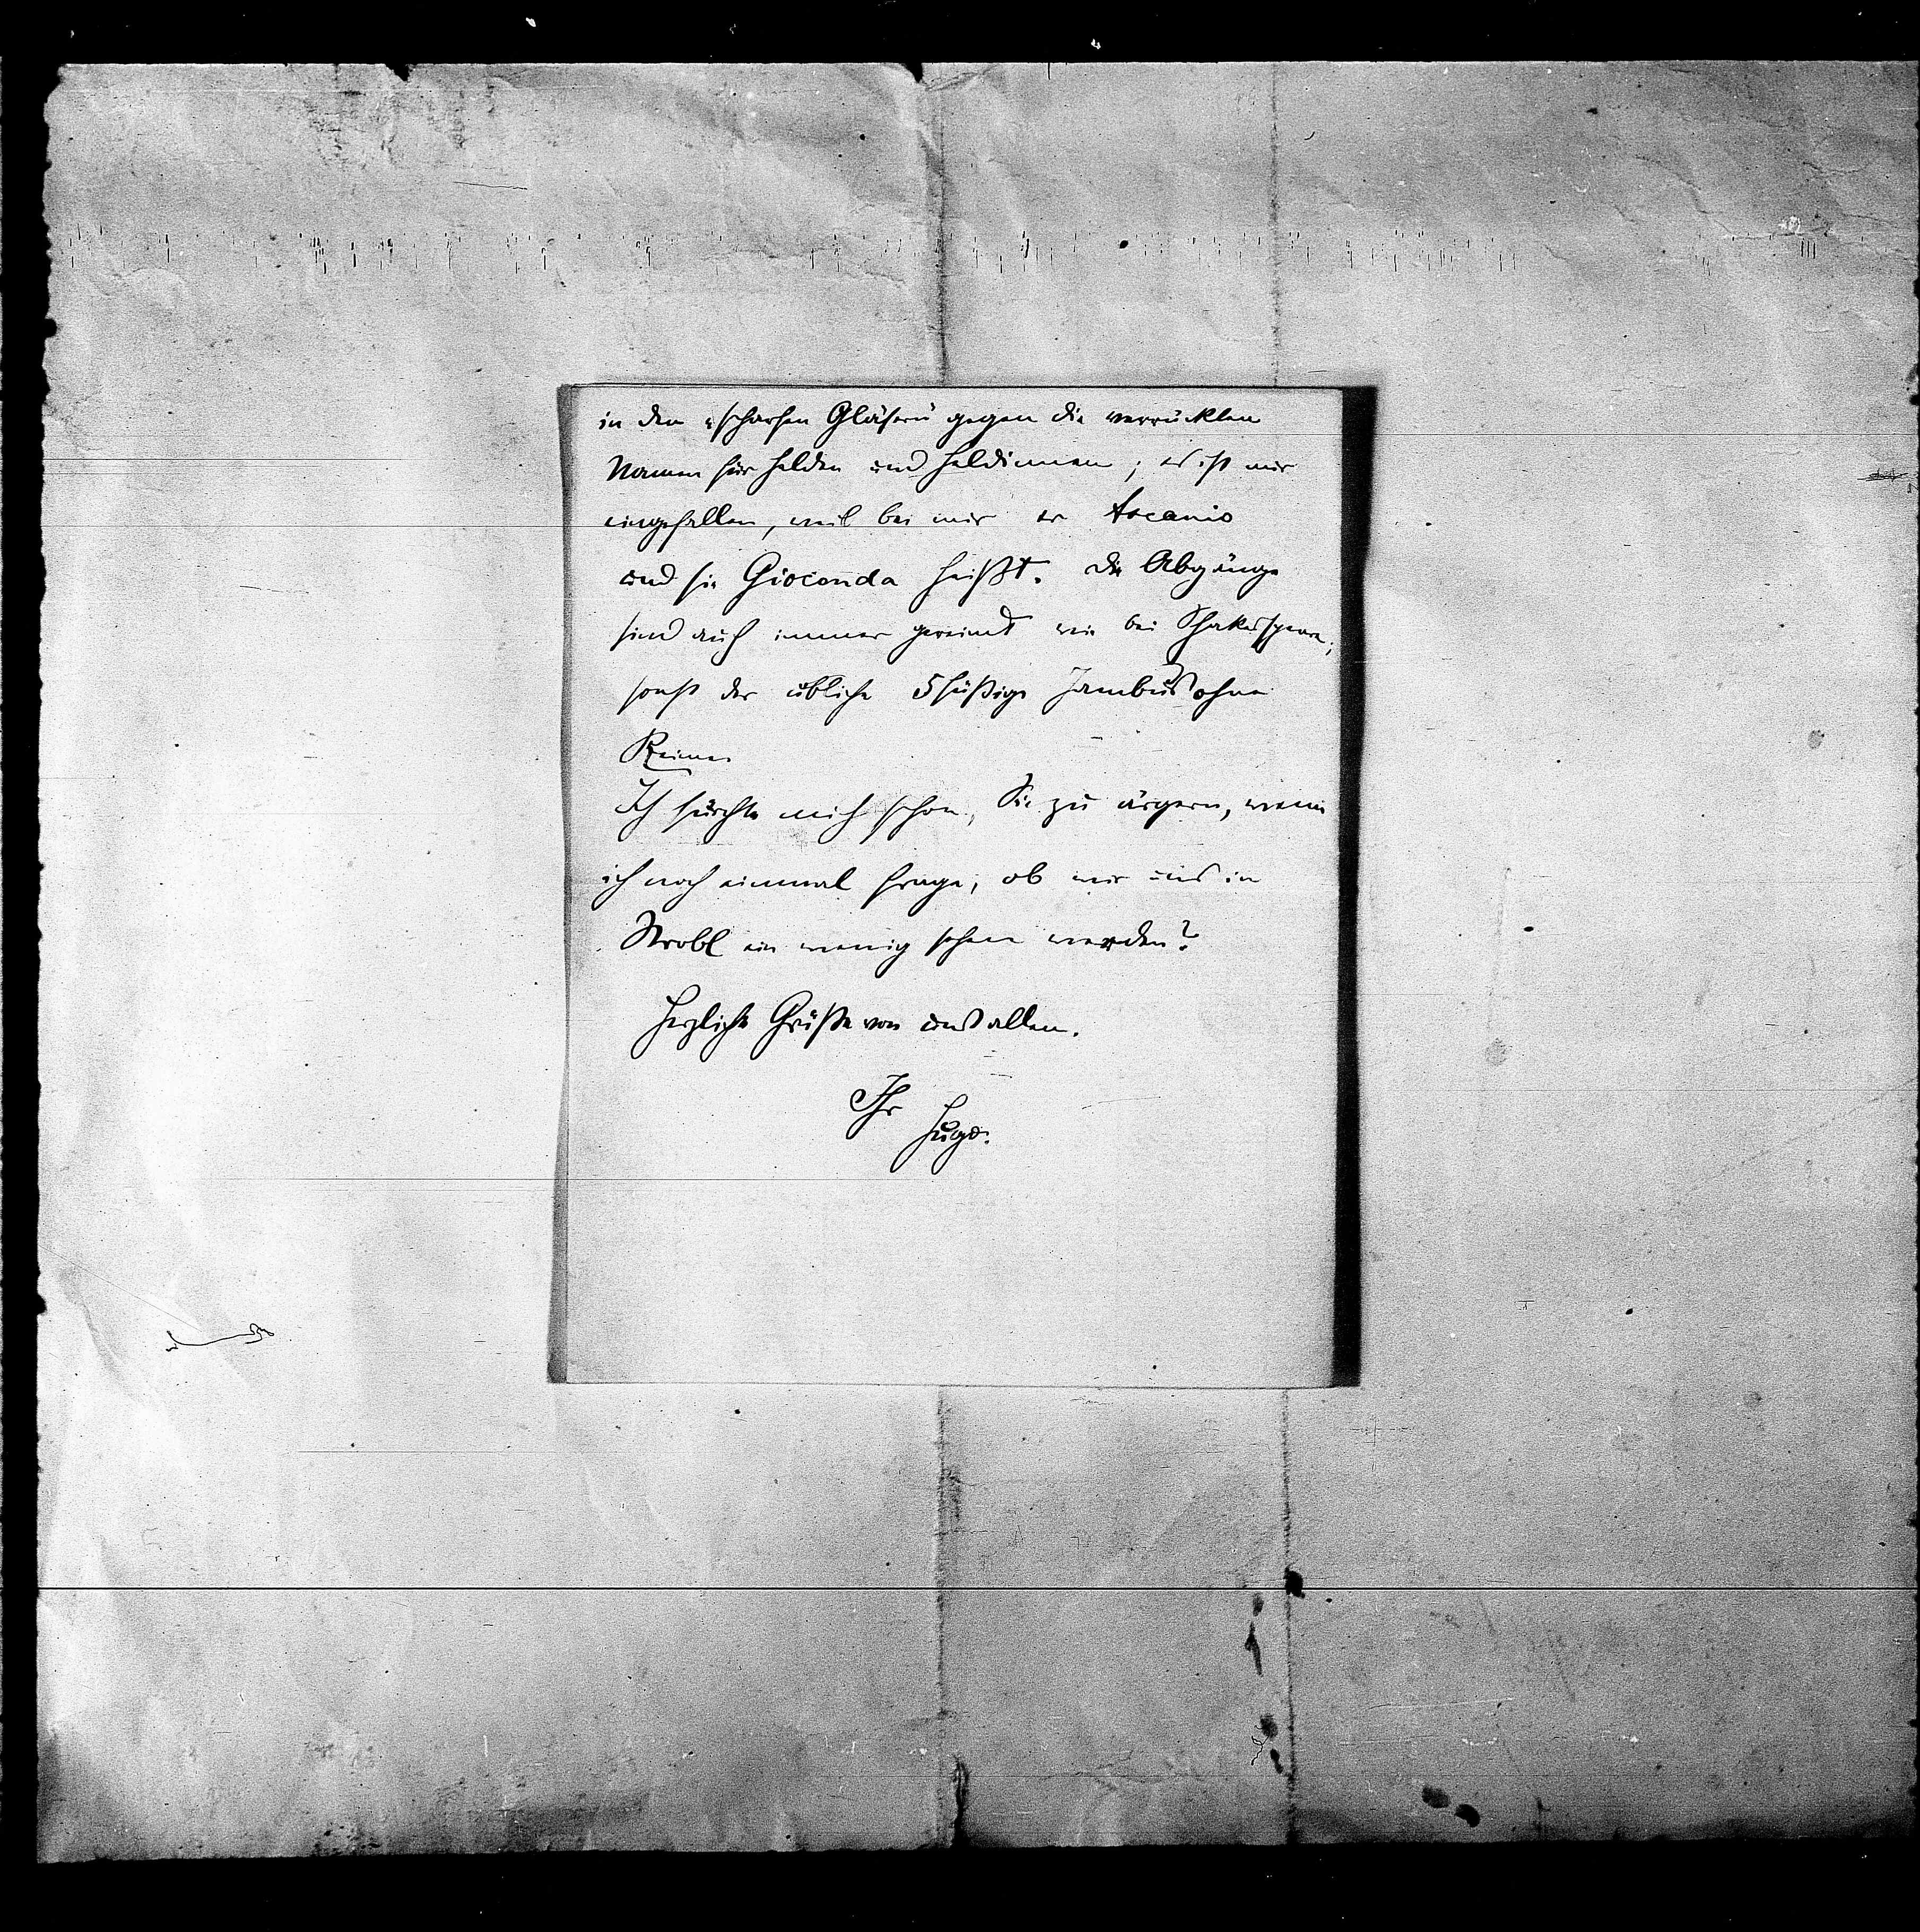 in den „scharfen Gläsern“ gegen die verrückten
Namen für Helden und Heldinnen; es ist mir
eingefallen, weil bei mir er Ascanio
und sie Gioconda heißt. Die Abgänge
sind auch immer gereimt wie bei Shakespeare;
sonst der übliche 5füßige Jambus ohne
Reime.
Ich fürchte mich schon, Sie zu ärgern, wenn
ich noch einmal frage, ob wir uns in
Strobl ein wenig sehen werden?
Herzliche Grüße von uns allen.
Ihr
Hugo.